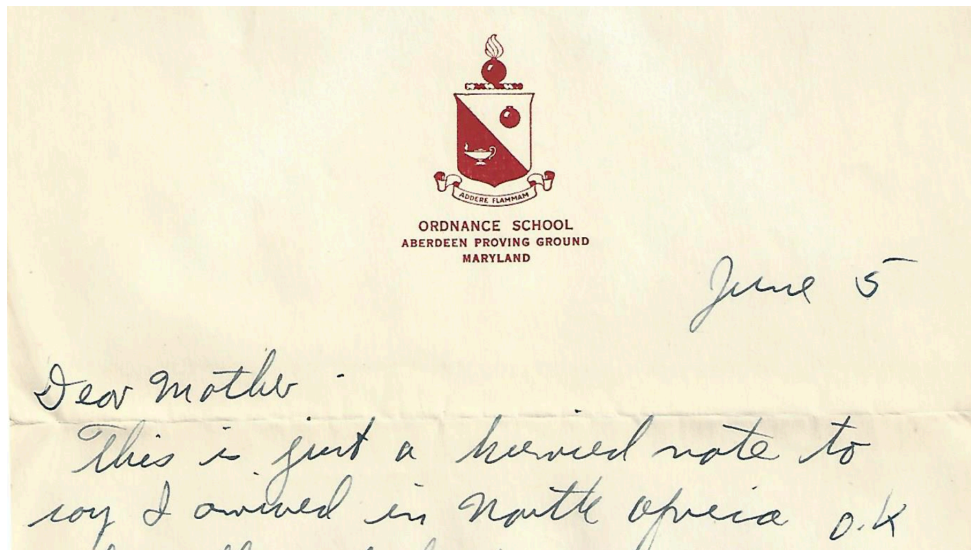 ADDERE FLAMMAM
ORDNANCE SCHOOL
ABERDEEN PROVING GROUND
MARYLAND
June 5
Dear Mother -
This is just a hurried note to
say I arrived in North Africa O.K